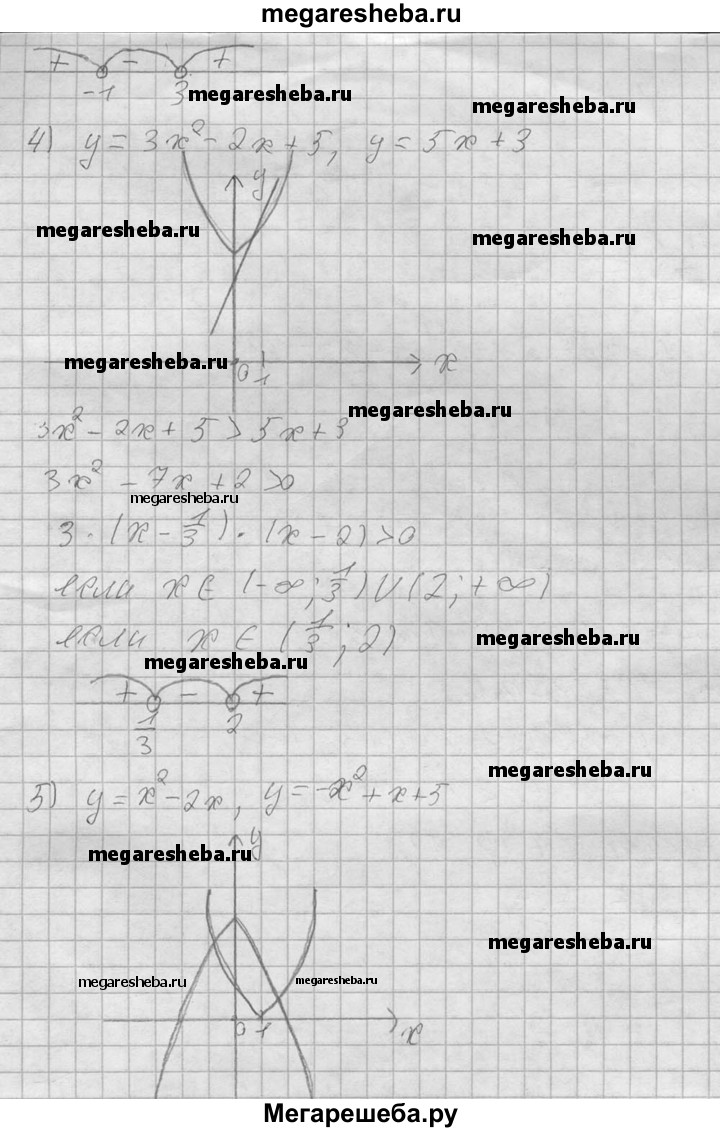 megaresheba.ru
+ - +
-1 3 megaresheba.ru
megaresheba.ru
4) y = 3x² - 2x + 5, y = 5x + 3
y
megaresheba.ru
megaresheba.ru
megaresheba.ru 0 1 x
megaresheba.ru
3x² - 2x + 5 > 5x + 3
3x² - 7x + 2 > 0
megaresheba.ru
3 · (x - 1/3) · (x - 2) > 0
если x ∈ (-∞; 1/3) ∪ (2; +∞)
если x ∈ (1/3; 2)
megaresheba.ru
megaresheba.ru
+ - +
1/3 2
megaresheba.ru
5) y = x² - 2x, y = -x² + x + 5
y
megaresheba.ru
megaresheba.ru
megaresheba.ru megaresheba.ru
0 1 x
Мегарешеба.ру